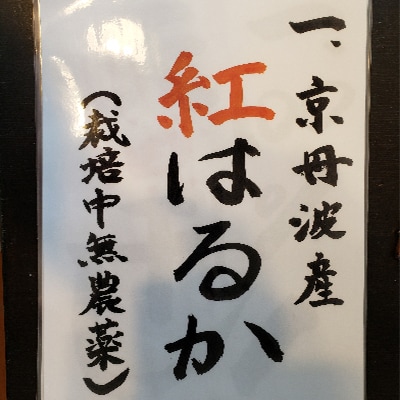 一、京丹波産
紅はるか
（栽培中無農薬）